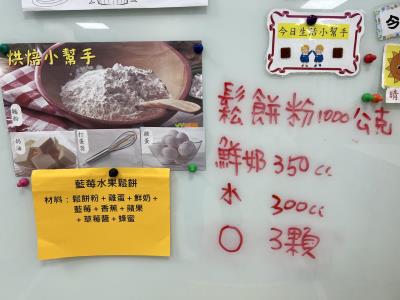 烘焙小幫手
麵粉
奶油
打蛋器
雞蛋
今日生活小幫手
今
晴
鬆餅粉1000公克
鮮奶 350cc
水 300cc
○ 3顆
藍莓水果鬆餅
材料：鬆餅粉+雞蛋+鮮奶+
藍莓+香蕉+蘋果
+草莓醬+蜂蜜